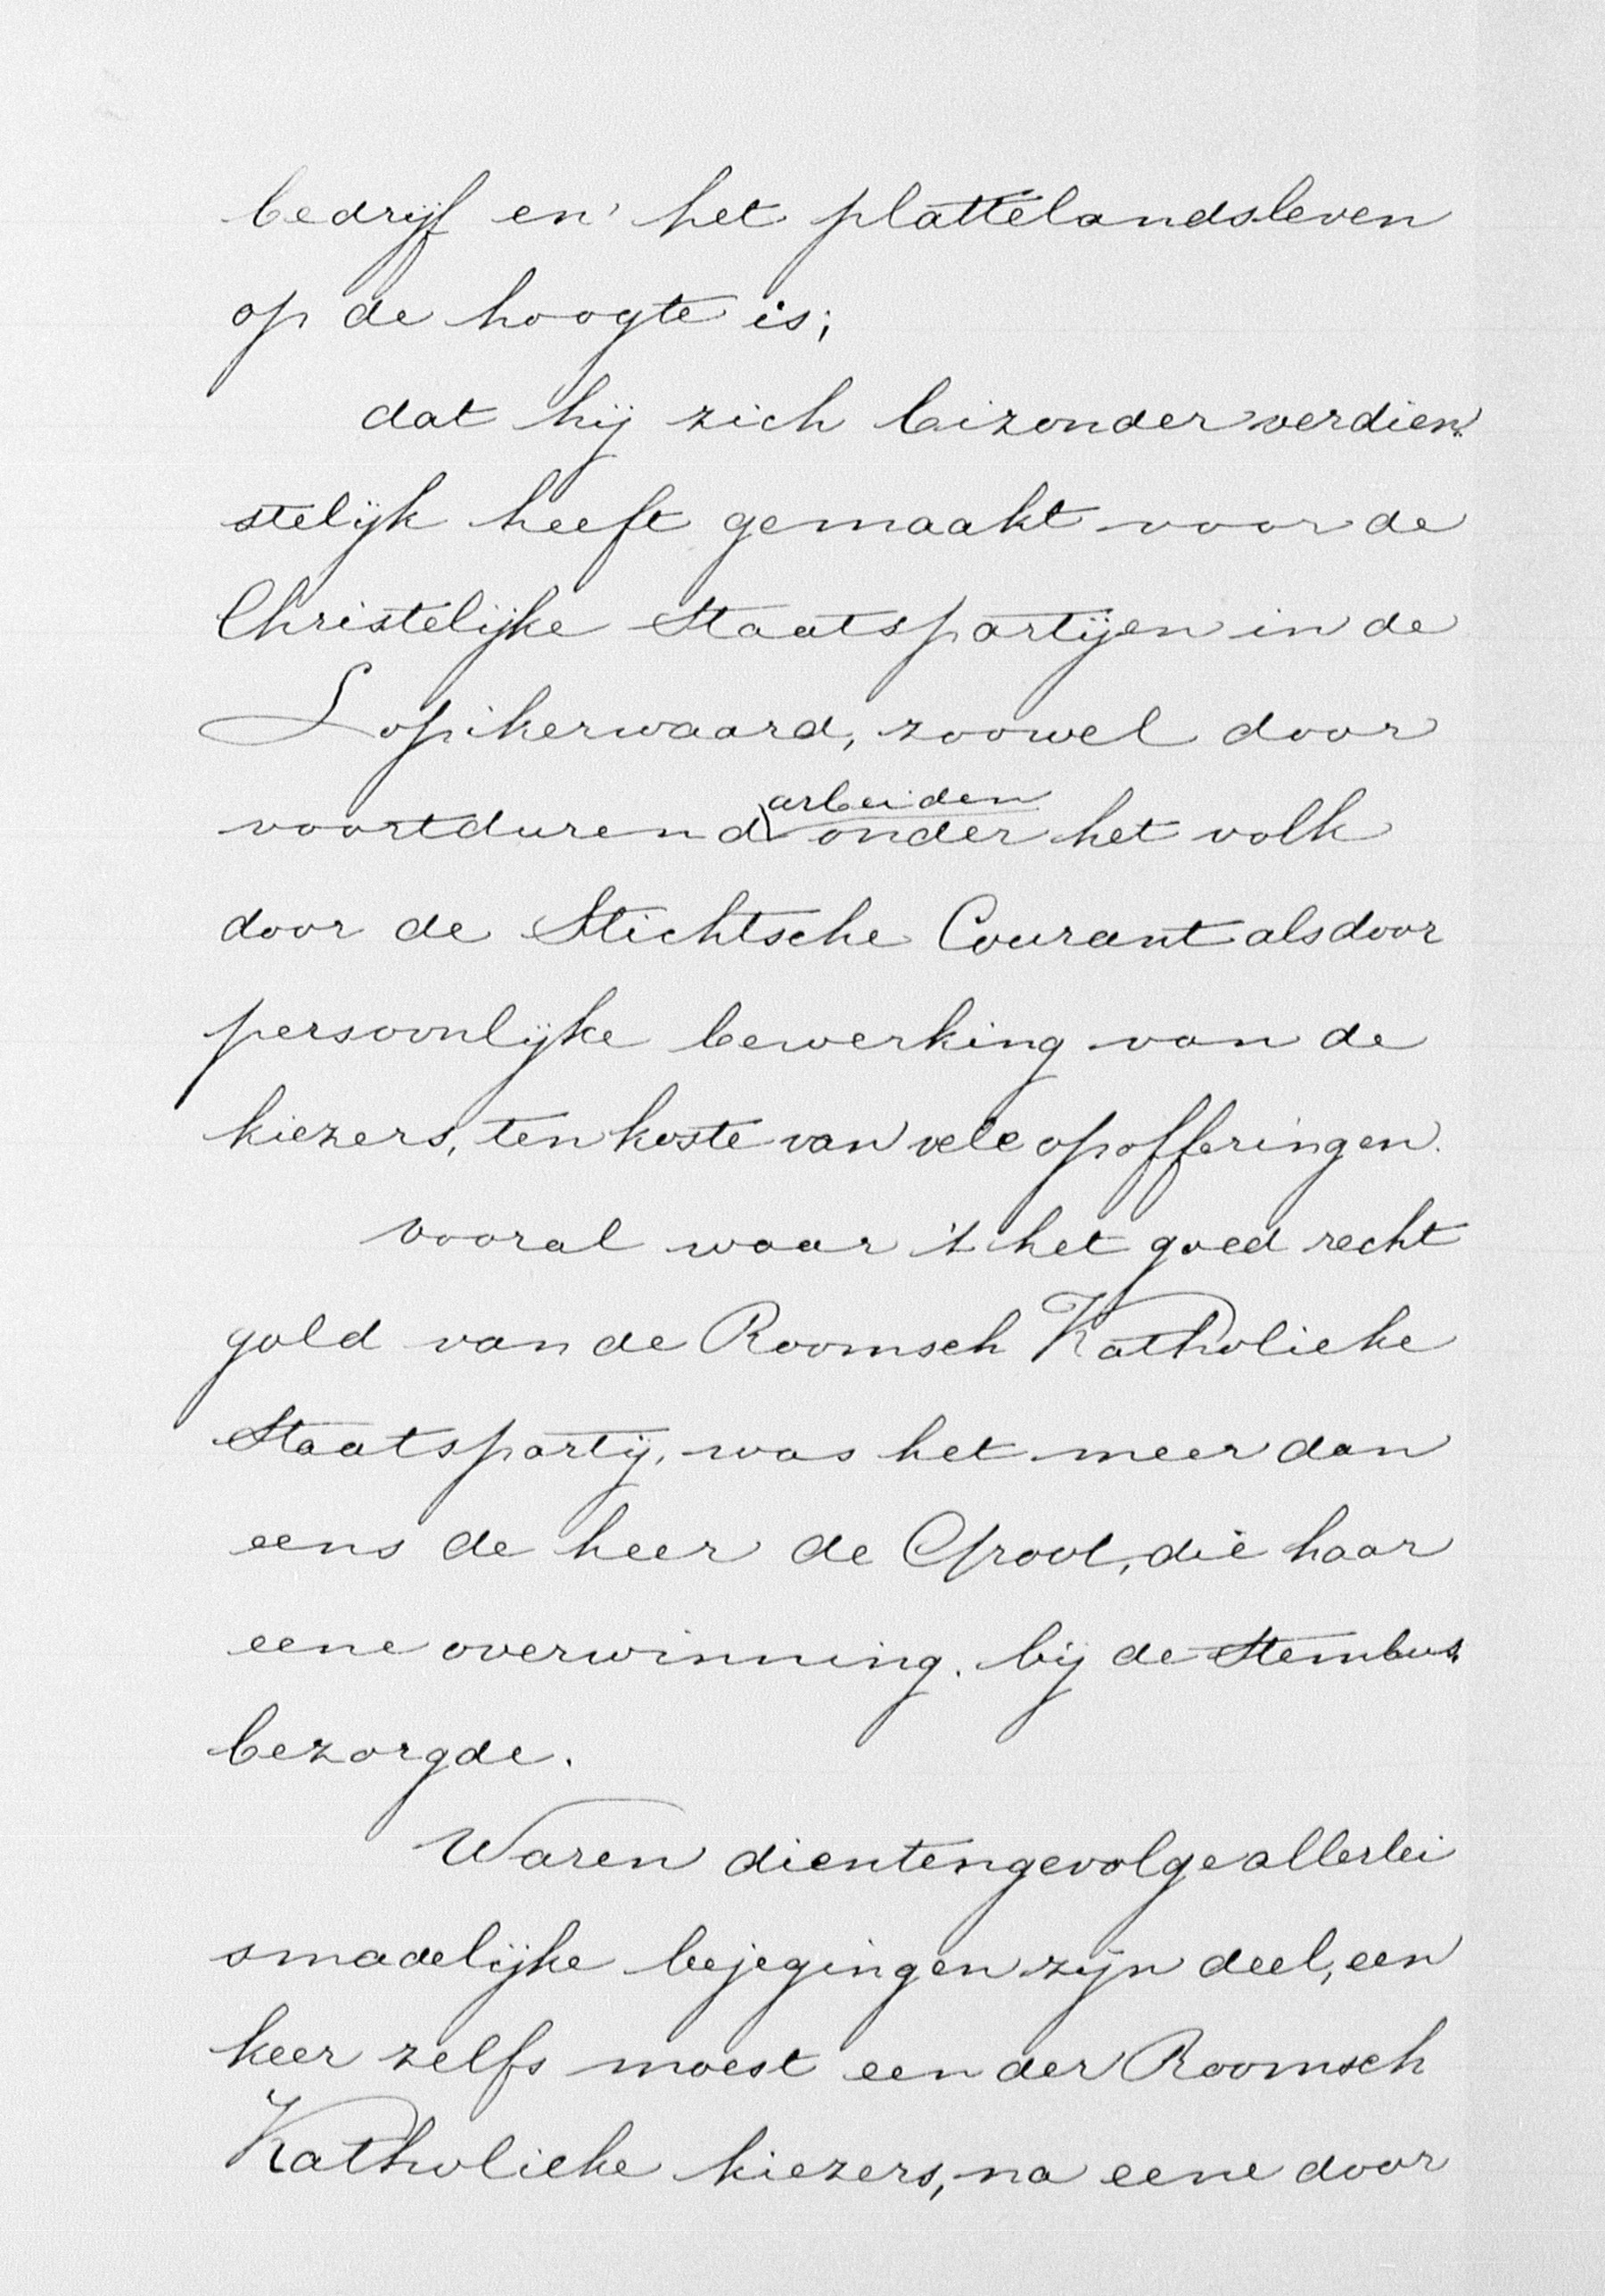 bedrijf en het plattelandsleven
op de hoogte is;
dat hij zich bizonder verdien-
stelijk heeft gemaakt voor de
Christelijke Staatspartijen in de
Lopikerwaard, zoowel door
voortdurend arbeiden onder het volk
door de Stichtsche Courant als door
persoonlijke bewerking van de
kiezers, ten koste van vele opofferingen.
vooral waar 't het goed recht
gold van de Roomsch Katholieke
Staatspartij, was het meer dan
eens de heer de Groot, die haar
eene overwinning. bij de Stembus
bezorgde.
Waren dientengevolge allerlei
smadelijke bejegingen zijn deel, een
keer zelfs moest een der Roomsch
Katholieke kiezers, na eene door